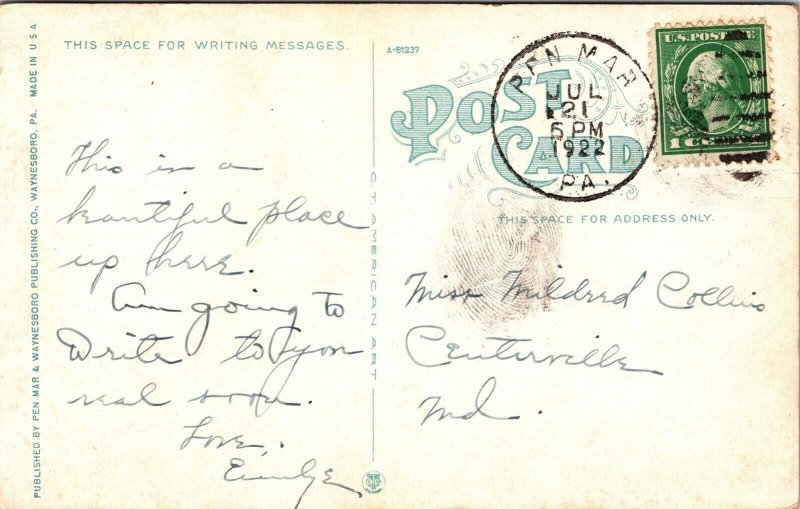 THIS SPACE FOR WRITING MESSAGES.
A-81237
POST CARD
PEN MAR
JUL
21
6 PM
1922
PA.
U.S. POSTAGE
1 CENT 1
THIS SPACE FOR ADDRESS ONLY.
This is a
beautiful place
up here.
Am going to
write to you
real soon.
Love,
Miss Mildred Collins
Centerville
Md.
C.T. AMERICAN ART
PUBLISHED BY PEN MAR & WAYNESBORO PUBLISHING CO., WAYNESBORO, PA. MADE IN U S A